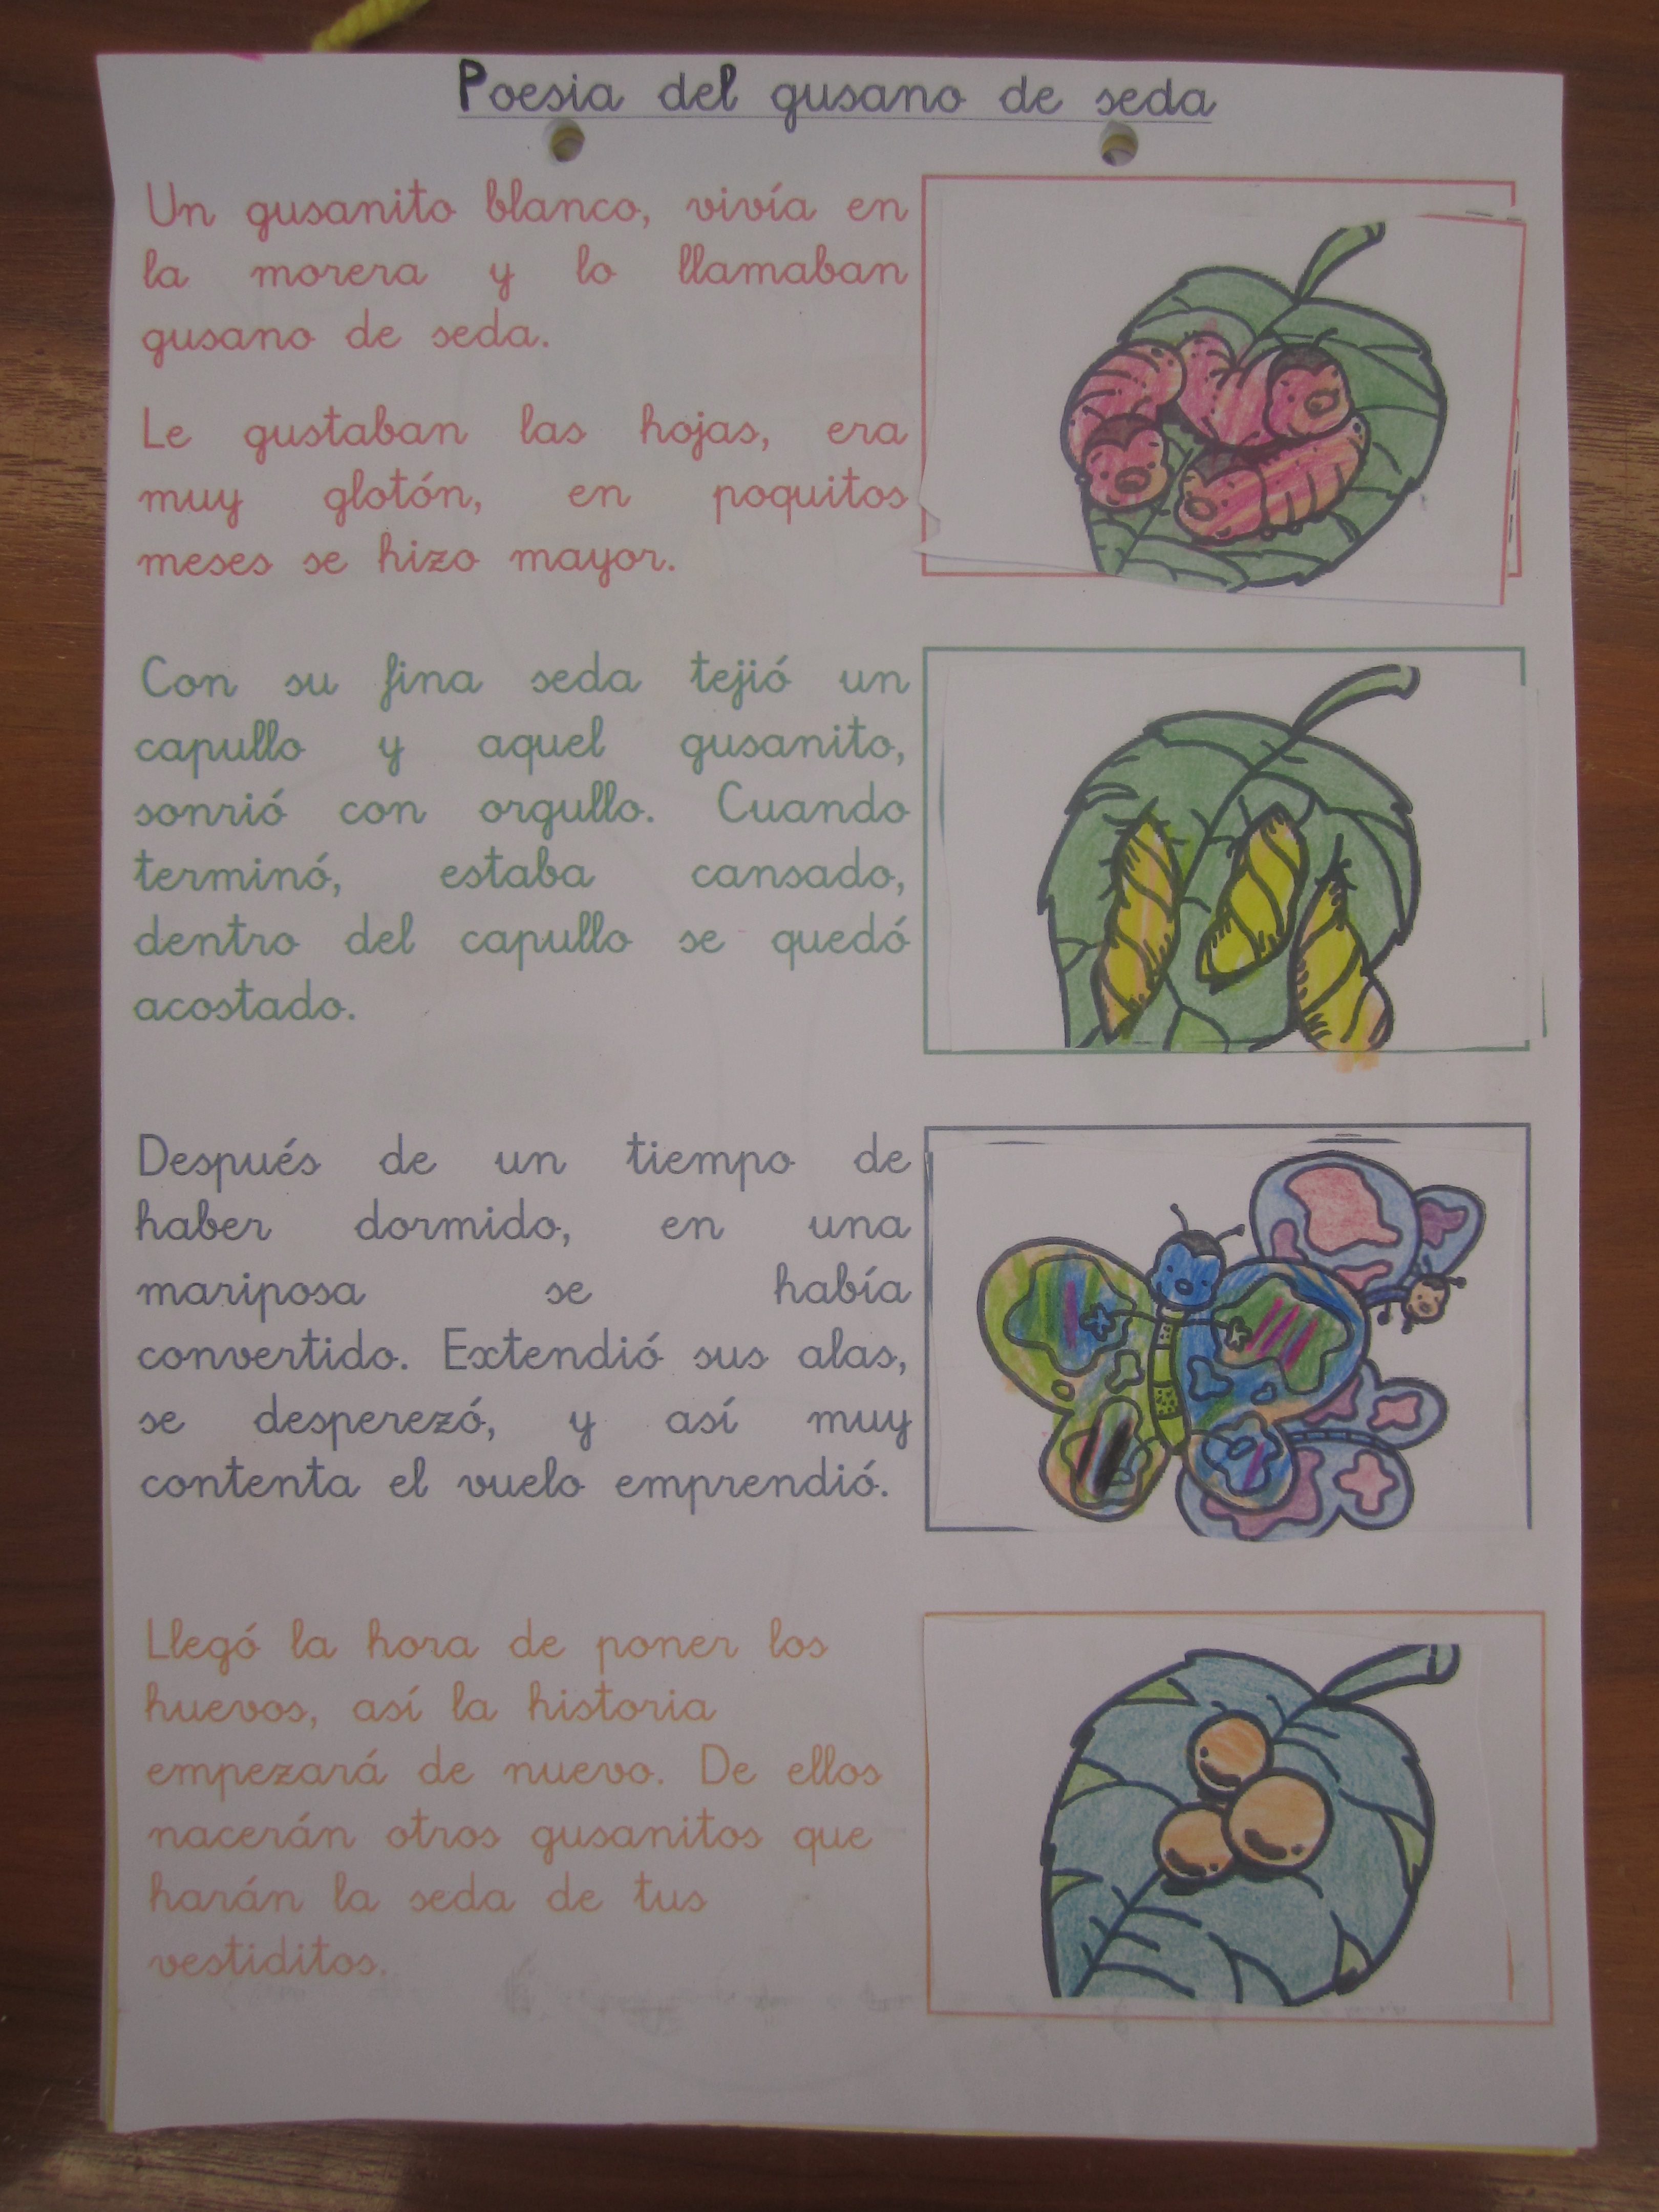 Poesia del gusano de seda
Un gusanito blanco, vivía en
la morera y lo llamaban
gusano de seda.
Le gustaban las hojas, era
muy glotón, en poquitos
meses se hizo mayor.
Con su fina seda tejió un
capullo y aquel gusanito,
sonrió con orgullo. Cuando
terminó, estaba cansado,
dentro del capullo se quedó
acostado.
Después de un tiempo de
haber dormido, en una
mariposa se había
convertido. Extendió sus alas,
se desperezó, y así muy
contenta el vuelo emprendió.
Llegó la hora de poner los
huevos, así la historia
empezará de nuevo. De ellos
nacerán otros gusanitos que
harán la seda de tus
vestiditos.